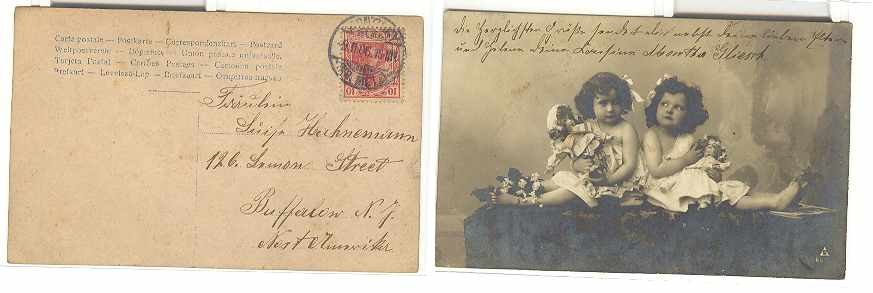 Carte postale — Postkarte — Correspondenzkart — Postcard
Weltpostverein — Dopisnice — Union postale universelle.
Tarjeta Postal — Cartões Postaes — Cartolina postale
Brefkort — Levelező-Lap — Briefkaart
10 10
Fräulein
Luise Hehnemann
126. Lemon Street
Buffalow N. J.
Nort Amerika
Die Herzlichsten Grüße sendet dir nebst deine lieben Eltern
und deine Cousine Martha